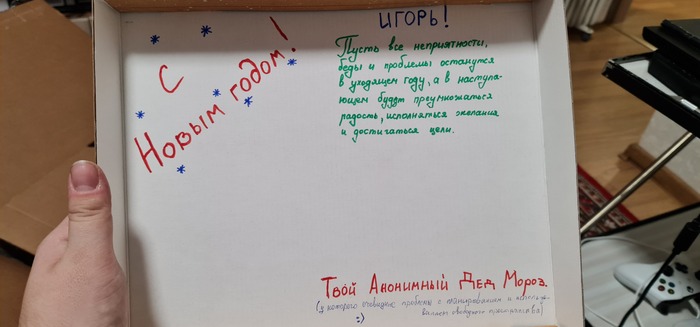 С
Новым годом!
ИГОРЬ!
Пусть все неприятности,
беды и проблемы останутся
в уходящем году, а в наступа-
ющем будут преумножаться
радость, исполняться желания
и достигаться цели.
Твой Анонимный Дед Мороз.
(у которого очевидные проблемы с планированием и использо-
ванием свободного пространства)
:)